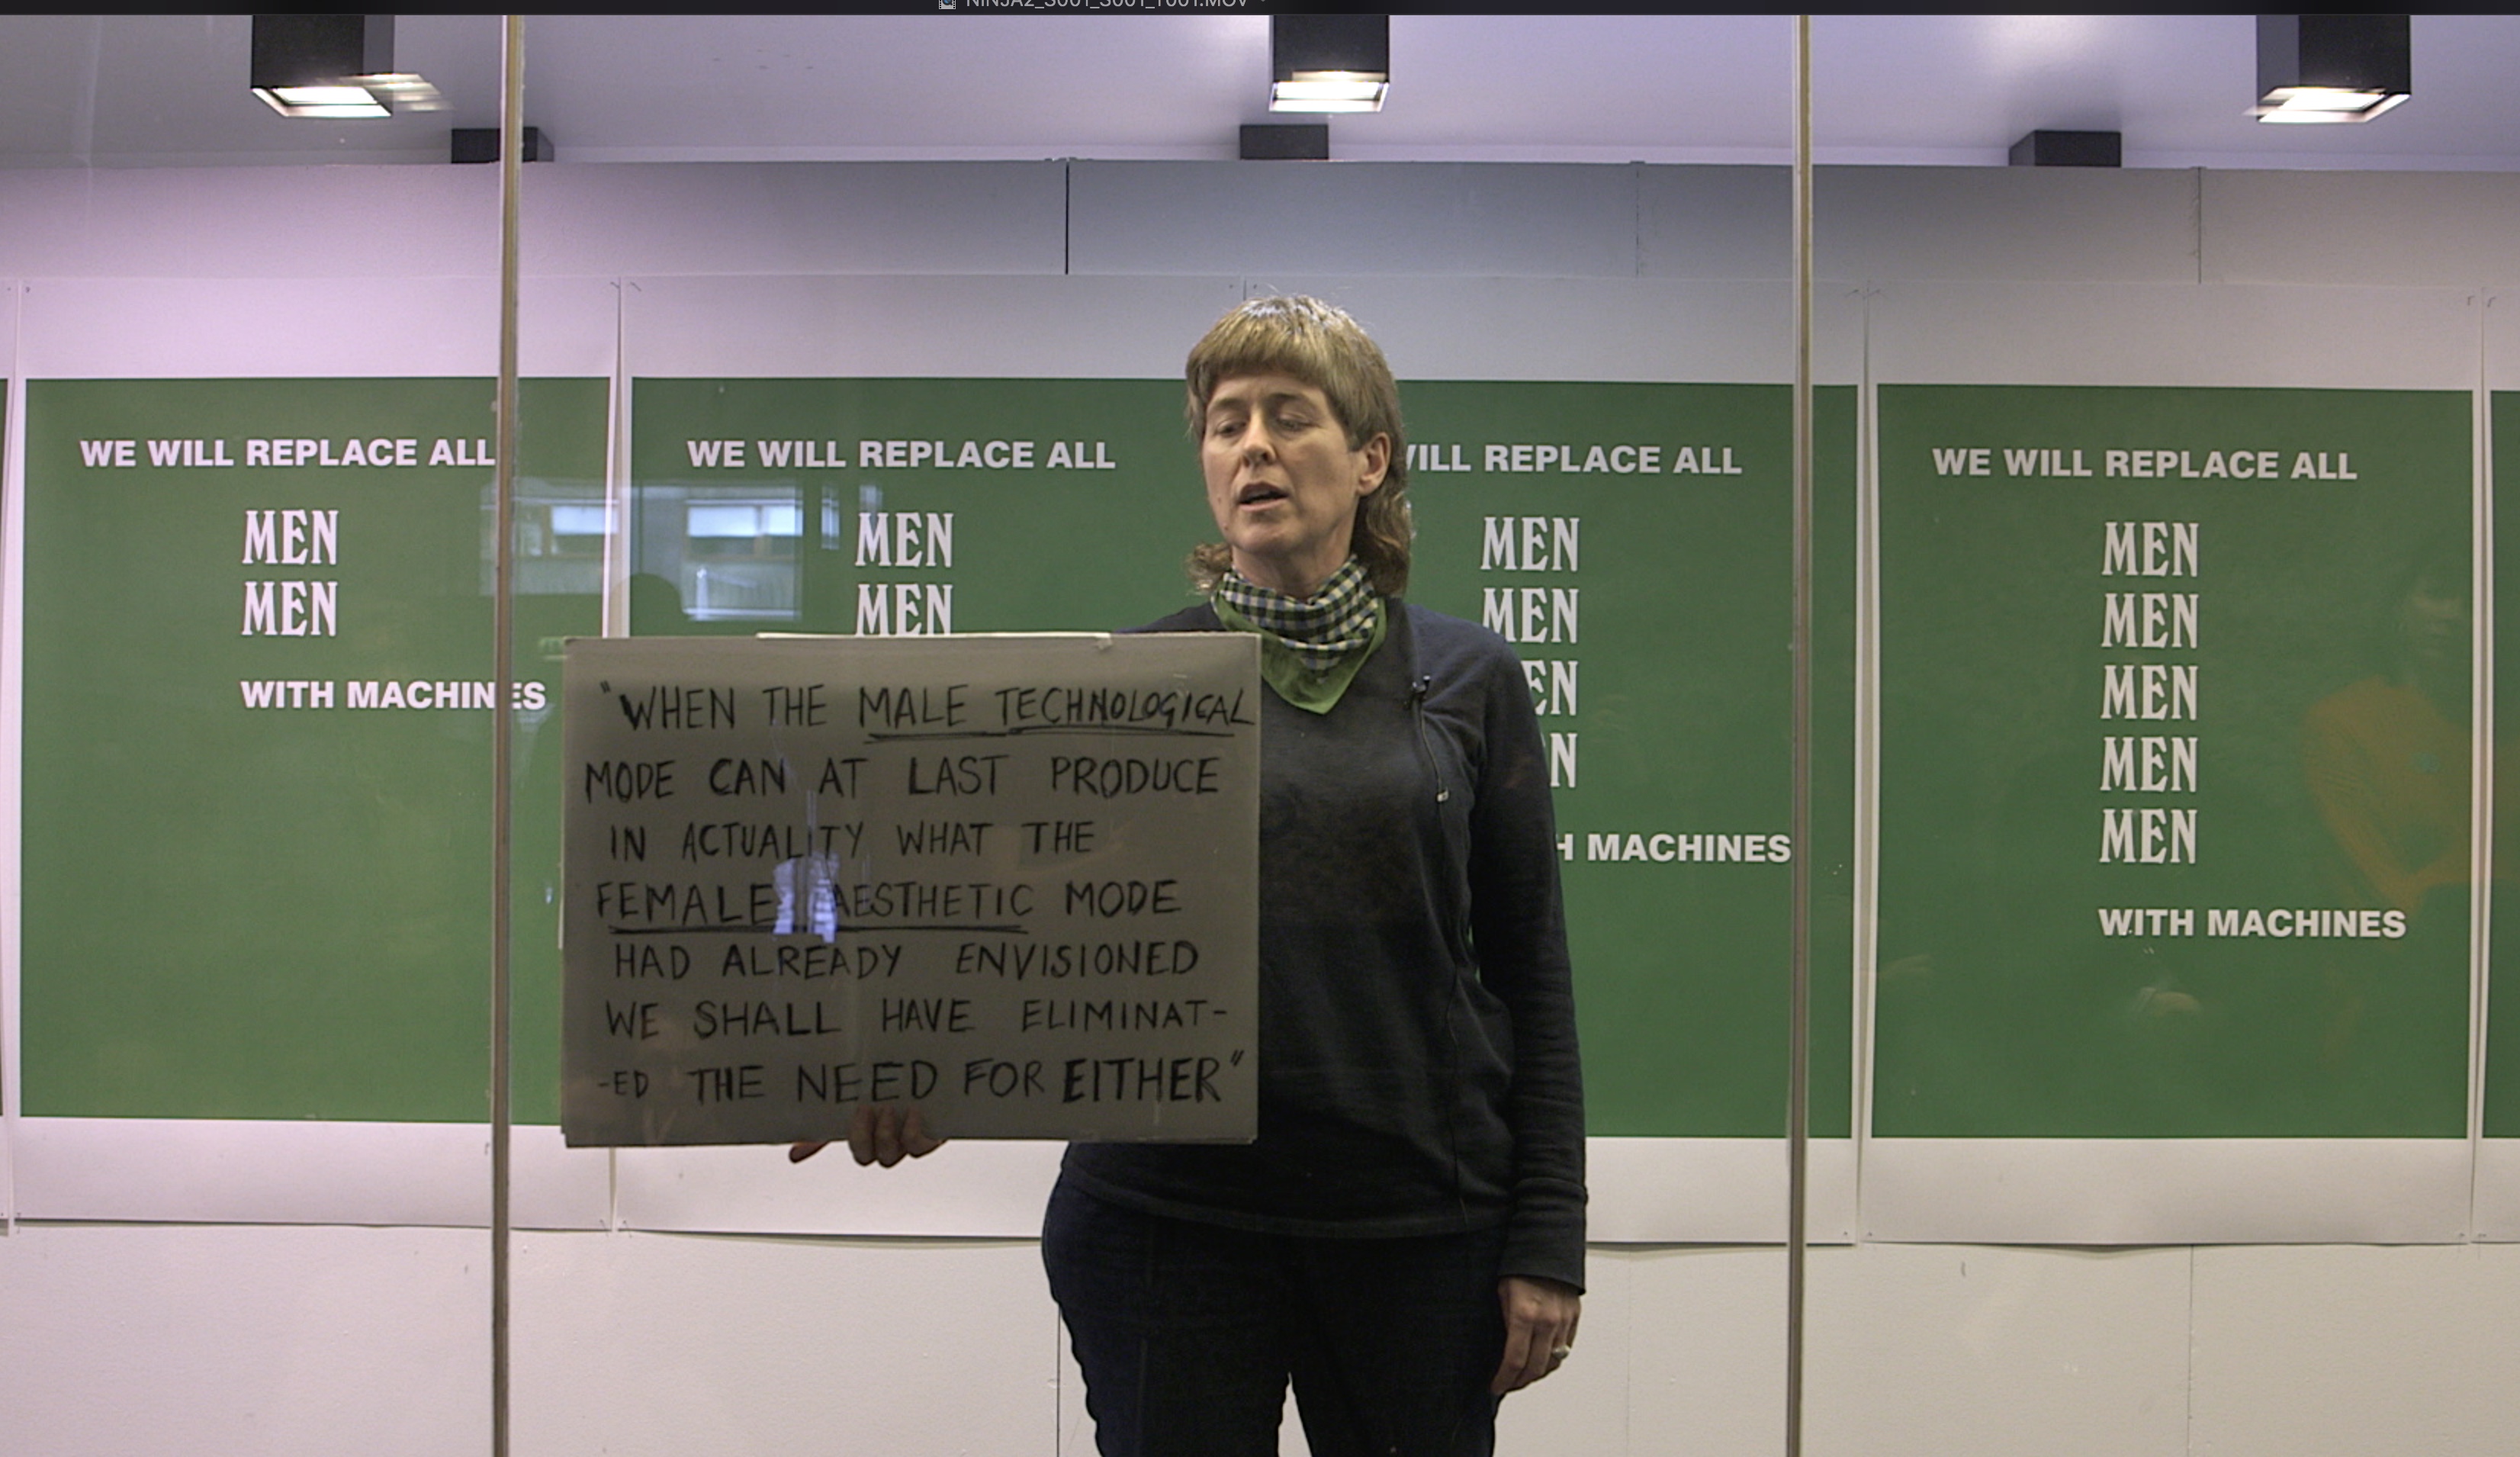 WE WILL REPLACE ALL
MEN
MEN
WITH MACHINES
WE WILL REPLACE ALL
MEN
MEN
"WHEN THE MALE TECHNOLOGICAL
MODE CAN AT LAST PRODUCE
IN ACTUALITY WHAT THE
FEMALE AESTHETIC MODE
HAD ALREADY ENVISIONED
WE SHALL HAVE ELIMINAT-
-ED THE NEED FOR EITHER"
REPLACE ALL
MEN
MEN
MACHINES
WE WILL REPLACE ALL
MEN
MEN
MEN
MEN
MEN
WITH MACHINES